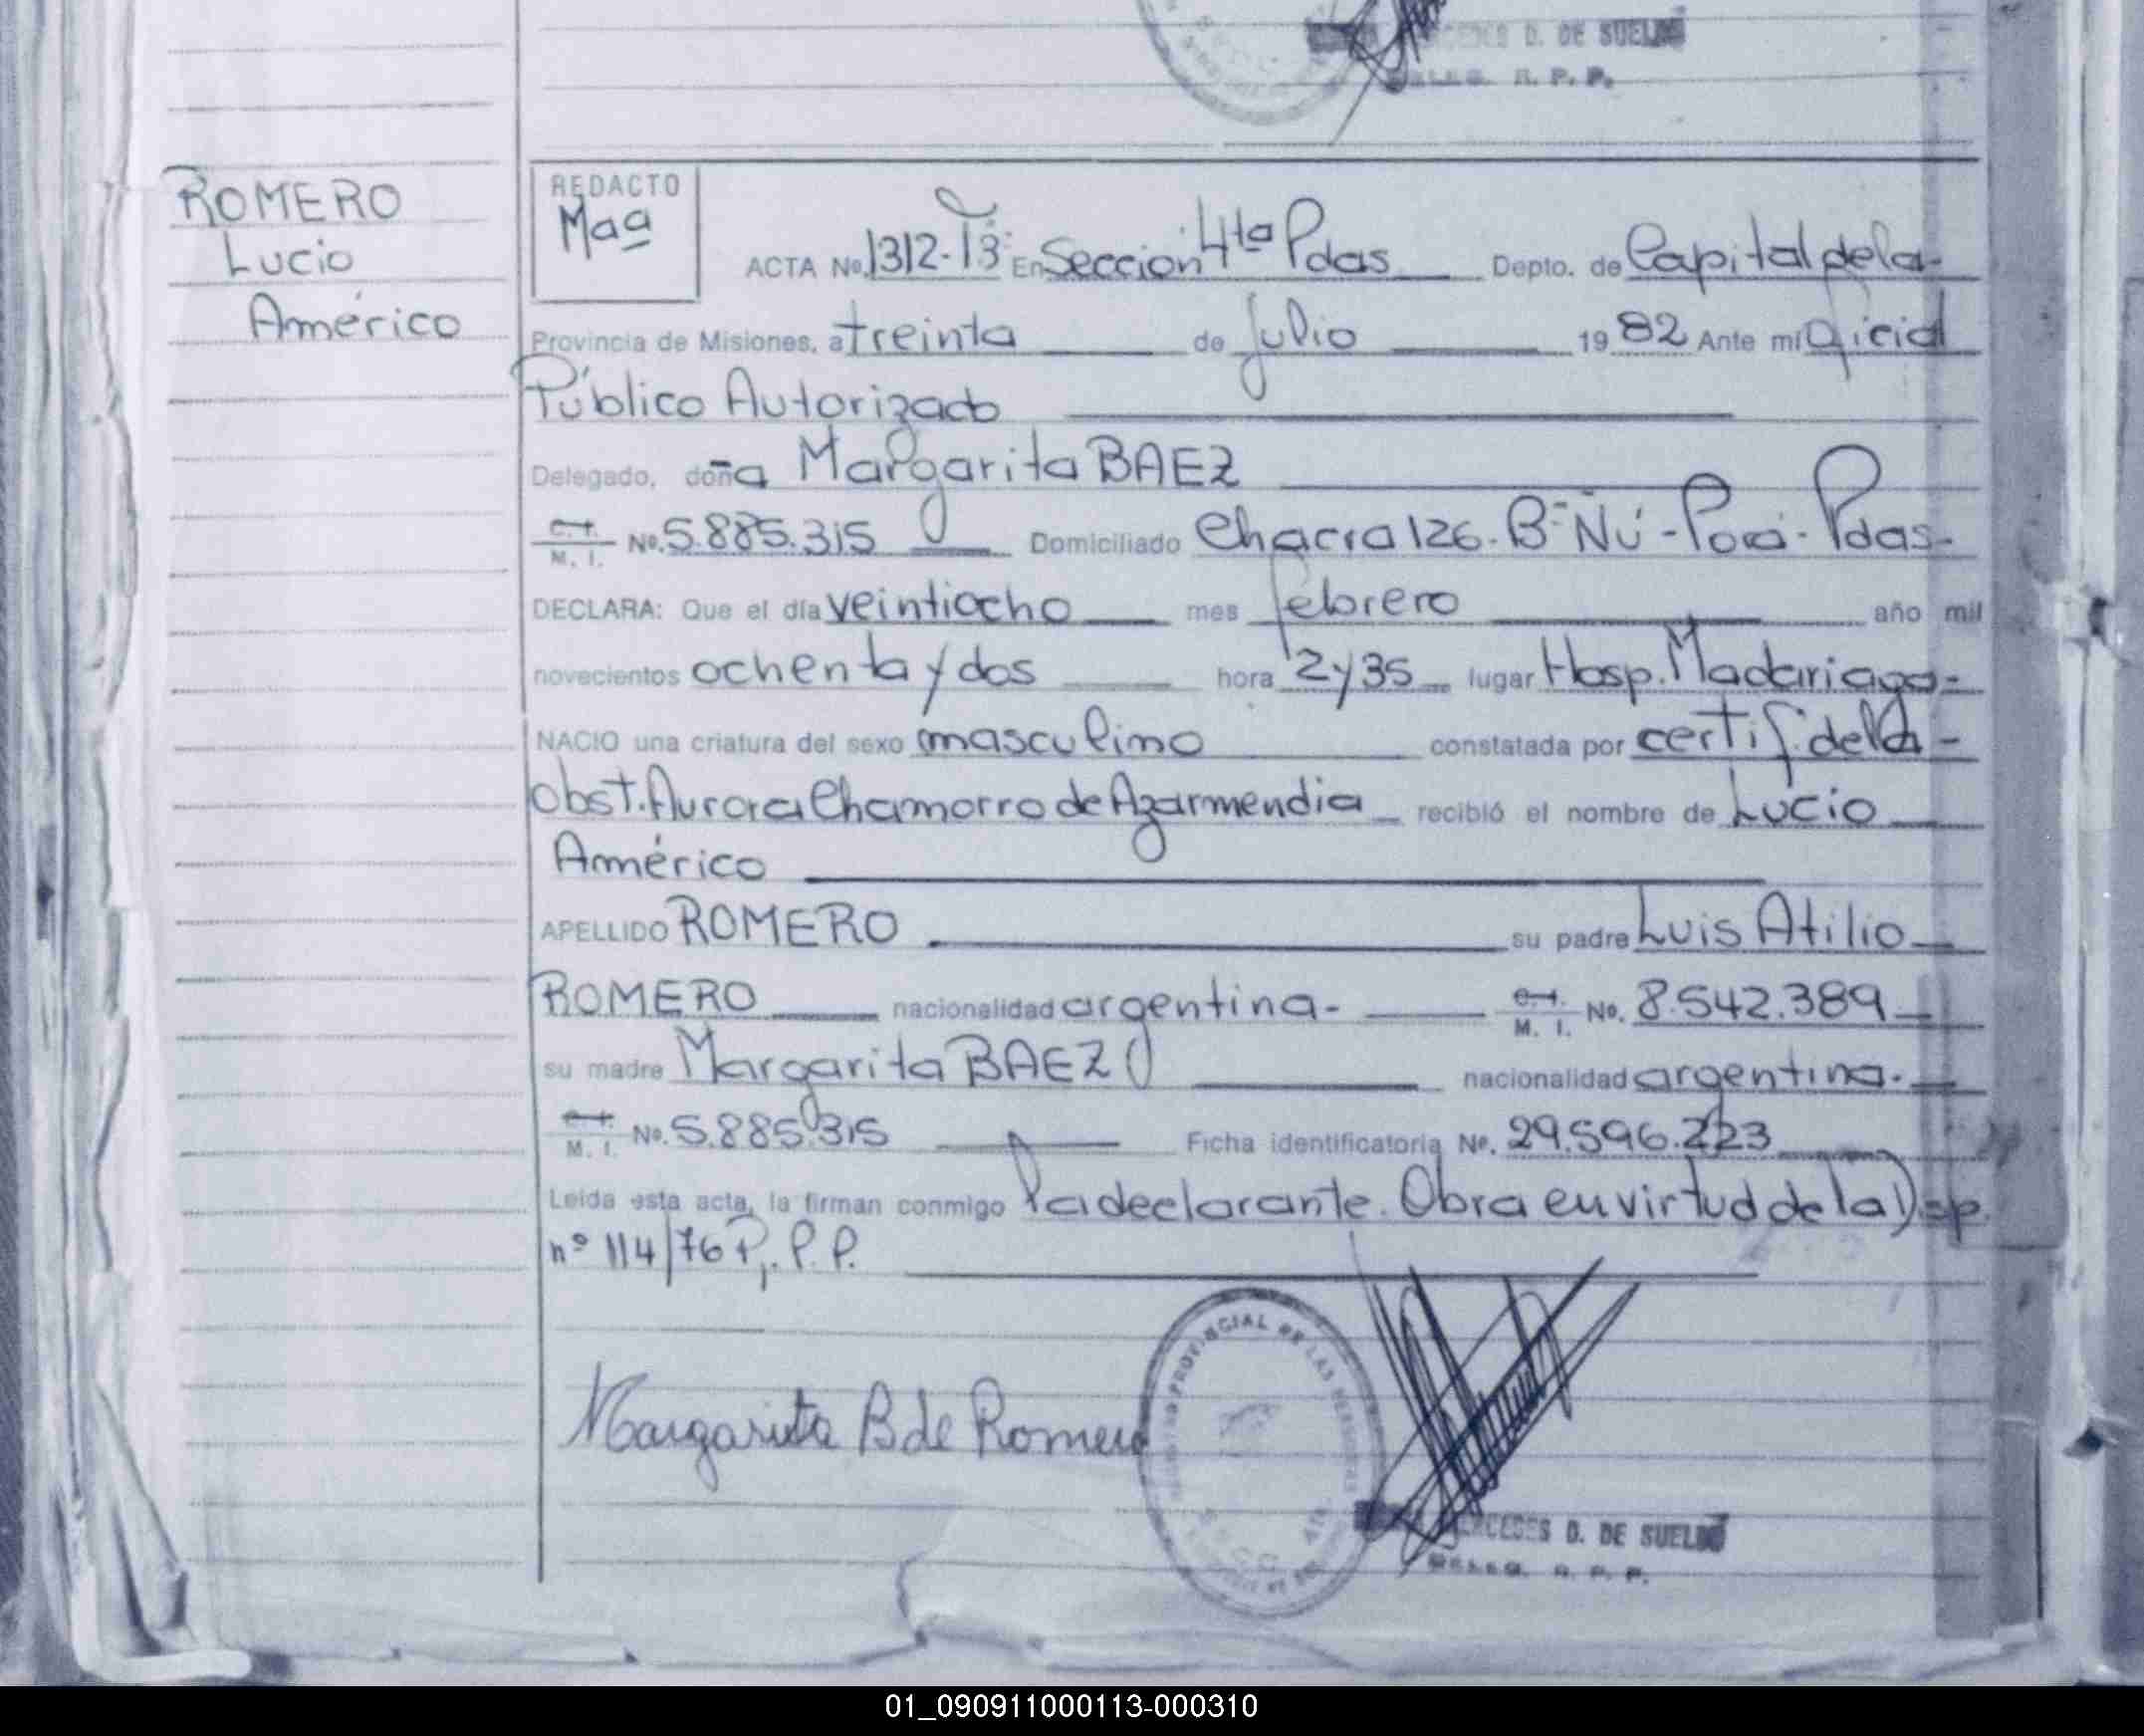 CEDES D. DE SUELDO
R. P. P.
ROMERO
Lucio
Américo
REDACTO
Maª
ACTA No. 1312-T3 En Sección 4ta Pdas Depto. de Capital de la-
Provincia de Misiones, a treinta de julio 1982 Ante mí Oficial
Público Autorizado
Delegado, doña Margarita BAEZ
C.I. M. I. No. 5.885.315 Domiciliado Chacra 126. Bº Ñú-Porá- Pdas-
DECLARA: Que el día veintiocho mes febrero año mil
novecientos ochenta y dos hora 2y35 lugar Hosp. Madariaga-
NACIO una criatura del sexo masculino constatada por certif. de la-
obst. Aurora Chamorro de Azarmendia recibió el nombre de Lucio
Américo
APELLIDO ROMERO su padre Luis Atilio
ROMERO nacionalidad argentina- C.I. M. I. No. 8.542.389
su madre Margarita BAEZ nacionalidad argentina.-
C.I. M. I. No. 5.885.315 Ficha identificatoria No. 29.596.223
Leída esta acta, la firman conmigo la declarante. Obra en virtud de la Disp.
nº 114/76 R. P. P.
Margarita B de Romero
PROVINCIAL DE LAS PERSONAS
MERCEDES D. DE SUELDO
DELEG. R. P. P.
01_090911000113-000310